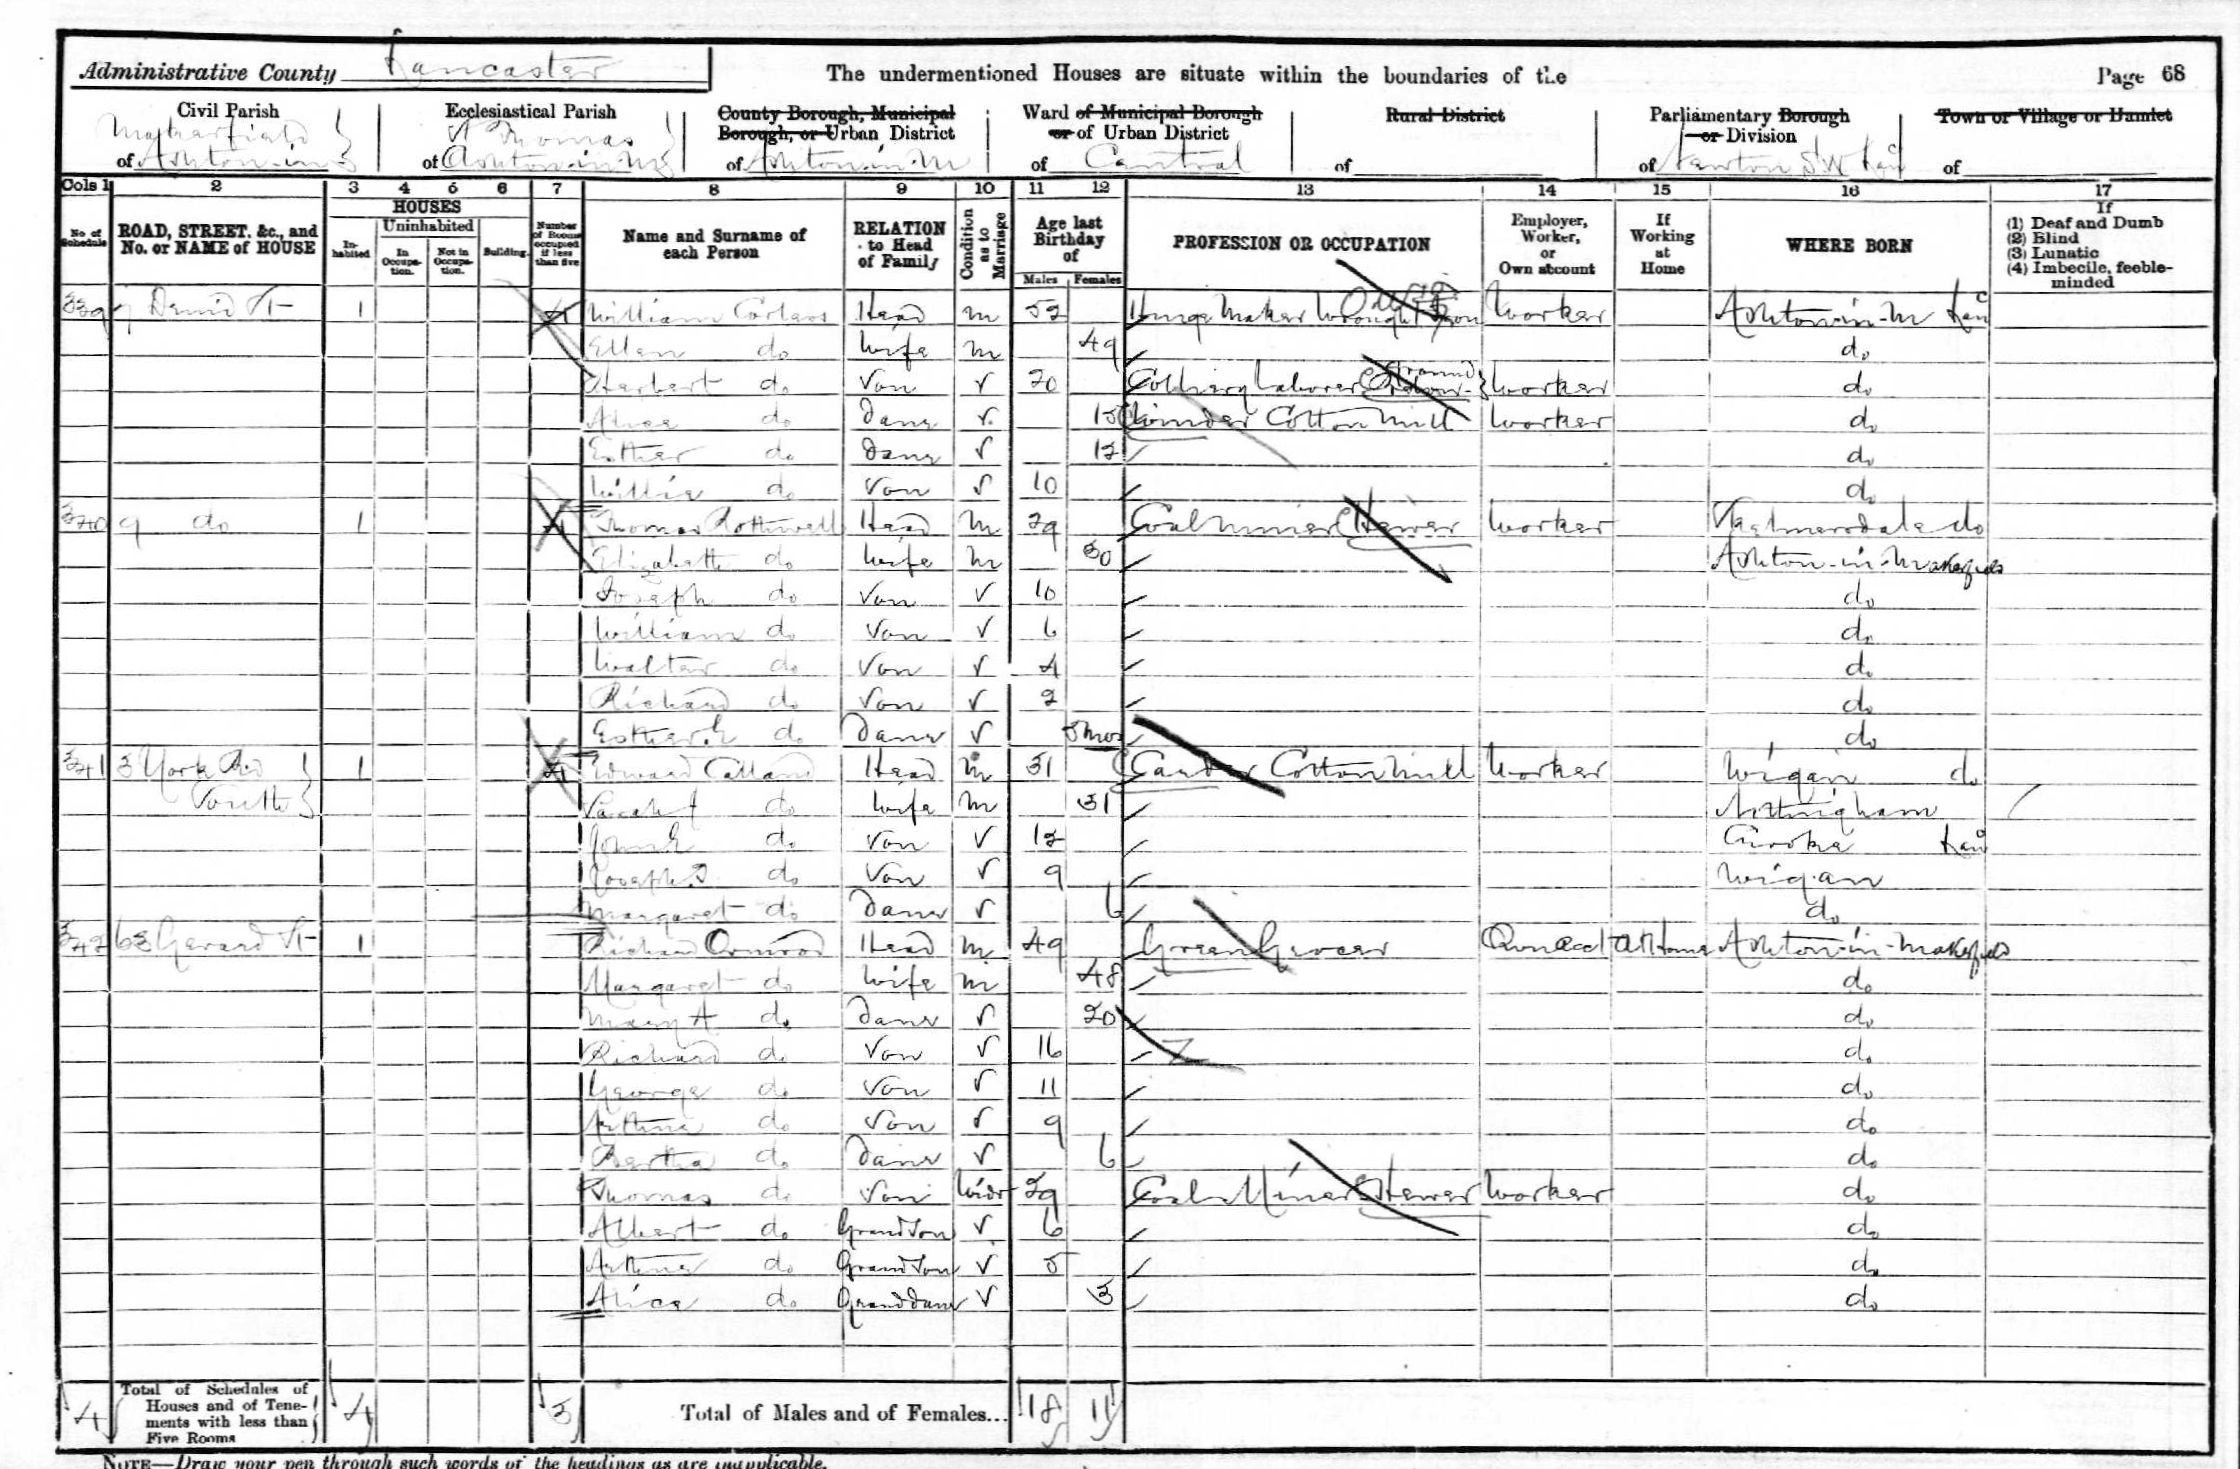 Administrative County Lancaster
The undermentioned Houses are situate within the boundaries of the
Page 68
Civil Parish
of Ashton-in-
Ecclesiastical Parish
St Thomas
of Ashton-in-M
County Borough, Municipal Borough, or Urban District
of Ashton-in-M
Ward of Municipal Borough or of Urban District
of Central
Rural District
of
Parliamentary Borough or Division
of Newton S.W. Lanc
Town or Village or Hamlet
of
Cols 1 2 3 4 5 6 7 8 9 10 11 12 13 14 15 16 17
No of Schedule
ROAD, STREET, &c., and No. or NAME of HOUSE
HOUSES
Inhabited
Uninhabited
In Occupation.
Not in Occupation.
Building.
Number of Rooms occupied if less than five
Name and Surname of each Person
RELATION to Head of Family
Condition as to Marriage
Age last Birthday of
Males Females
PROFESSION OR OCCUPATION
Employer, Worker, or Own account
If Working at Home
WHERE BORN
If
(1) Deaf and Dumb
(2) Blind
(3) Lunatic
(4) Imbecile, feeble-minded
339 7 St 1 4 William Corless Head M 52 Hinge Maker Wrought Iron Worker Ashton-in-M Lanc
Ellen do Wife M 49 do
Herbert do Son 20 Colliery Laborer Worker do
Alice do Daur 15 Winder Cotton Mill Worker do
Esther do Daur 12 do
Willie do Son 10 do
340 9 do 1 4 Thomas Rothwell Head M 29 Coal Miner Hewer Worker Skelmersdale do
Elizabeth do Wife M 30 Ashton-in-Makerfield
Joseph do Son 10 do
William do Son 6 do
Walter do Son 4 do
Richard do Son 2 do
Esther E do Daur 5 mos do
341 3 York Rd South 1 4 Edward Calland Head M 31 Carder Cotton Mill Worker Wigan do
Sarah do Wife M 31 Nottingham
John E do Son 12 Crooke Lanc
Joseph do Son 9 Wigan
Margaret do Daur 6 do
342 63 Gerard St 1 Richard Ormrod Head M 49 Green Grocer Own acct At Home Ashton-in-Makerfield
Margaret do Wife M 48 do
Mary A do Daur 20 do
Richard do Son 16 do
George do Son 11 do
Arthur do Son 9 do
Bertha do Daur 6 do
Thomas do Son Widr 29 Coal Miner Hewer Worker do
Albert do Grandson 6 do
Arthur do Grandson 5 do
Alice do Granddaur 3 do
4 Total of Schedules of Houses and of Tenements with less than Five Rooms 4 3 Total of Males and of Females... 18 11
NOTE—Draw your pen through such words of the headings as are inapplicable.